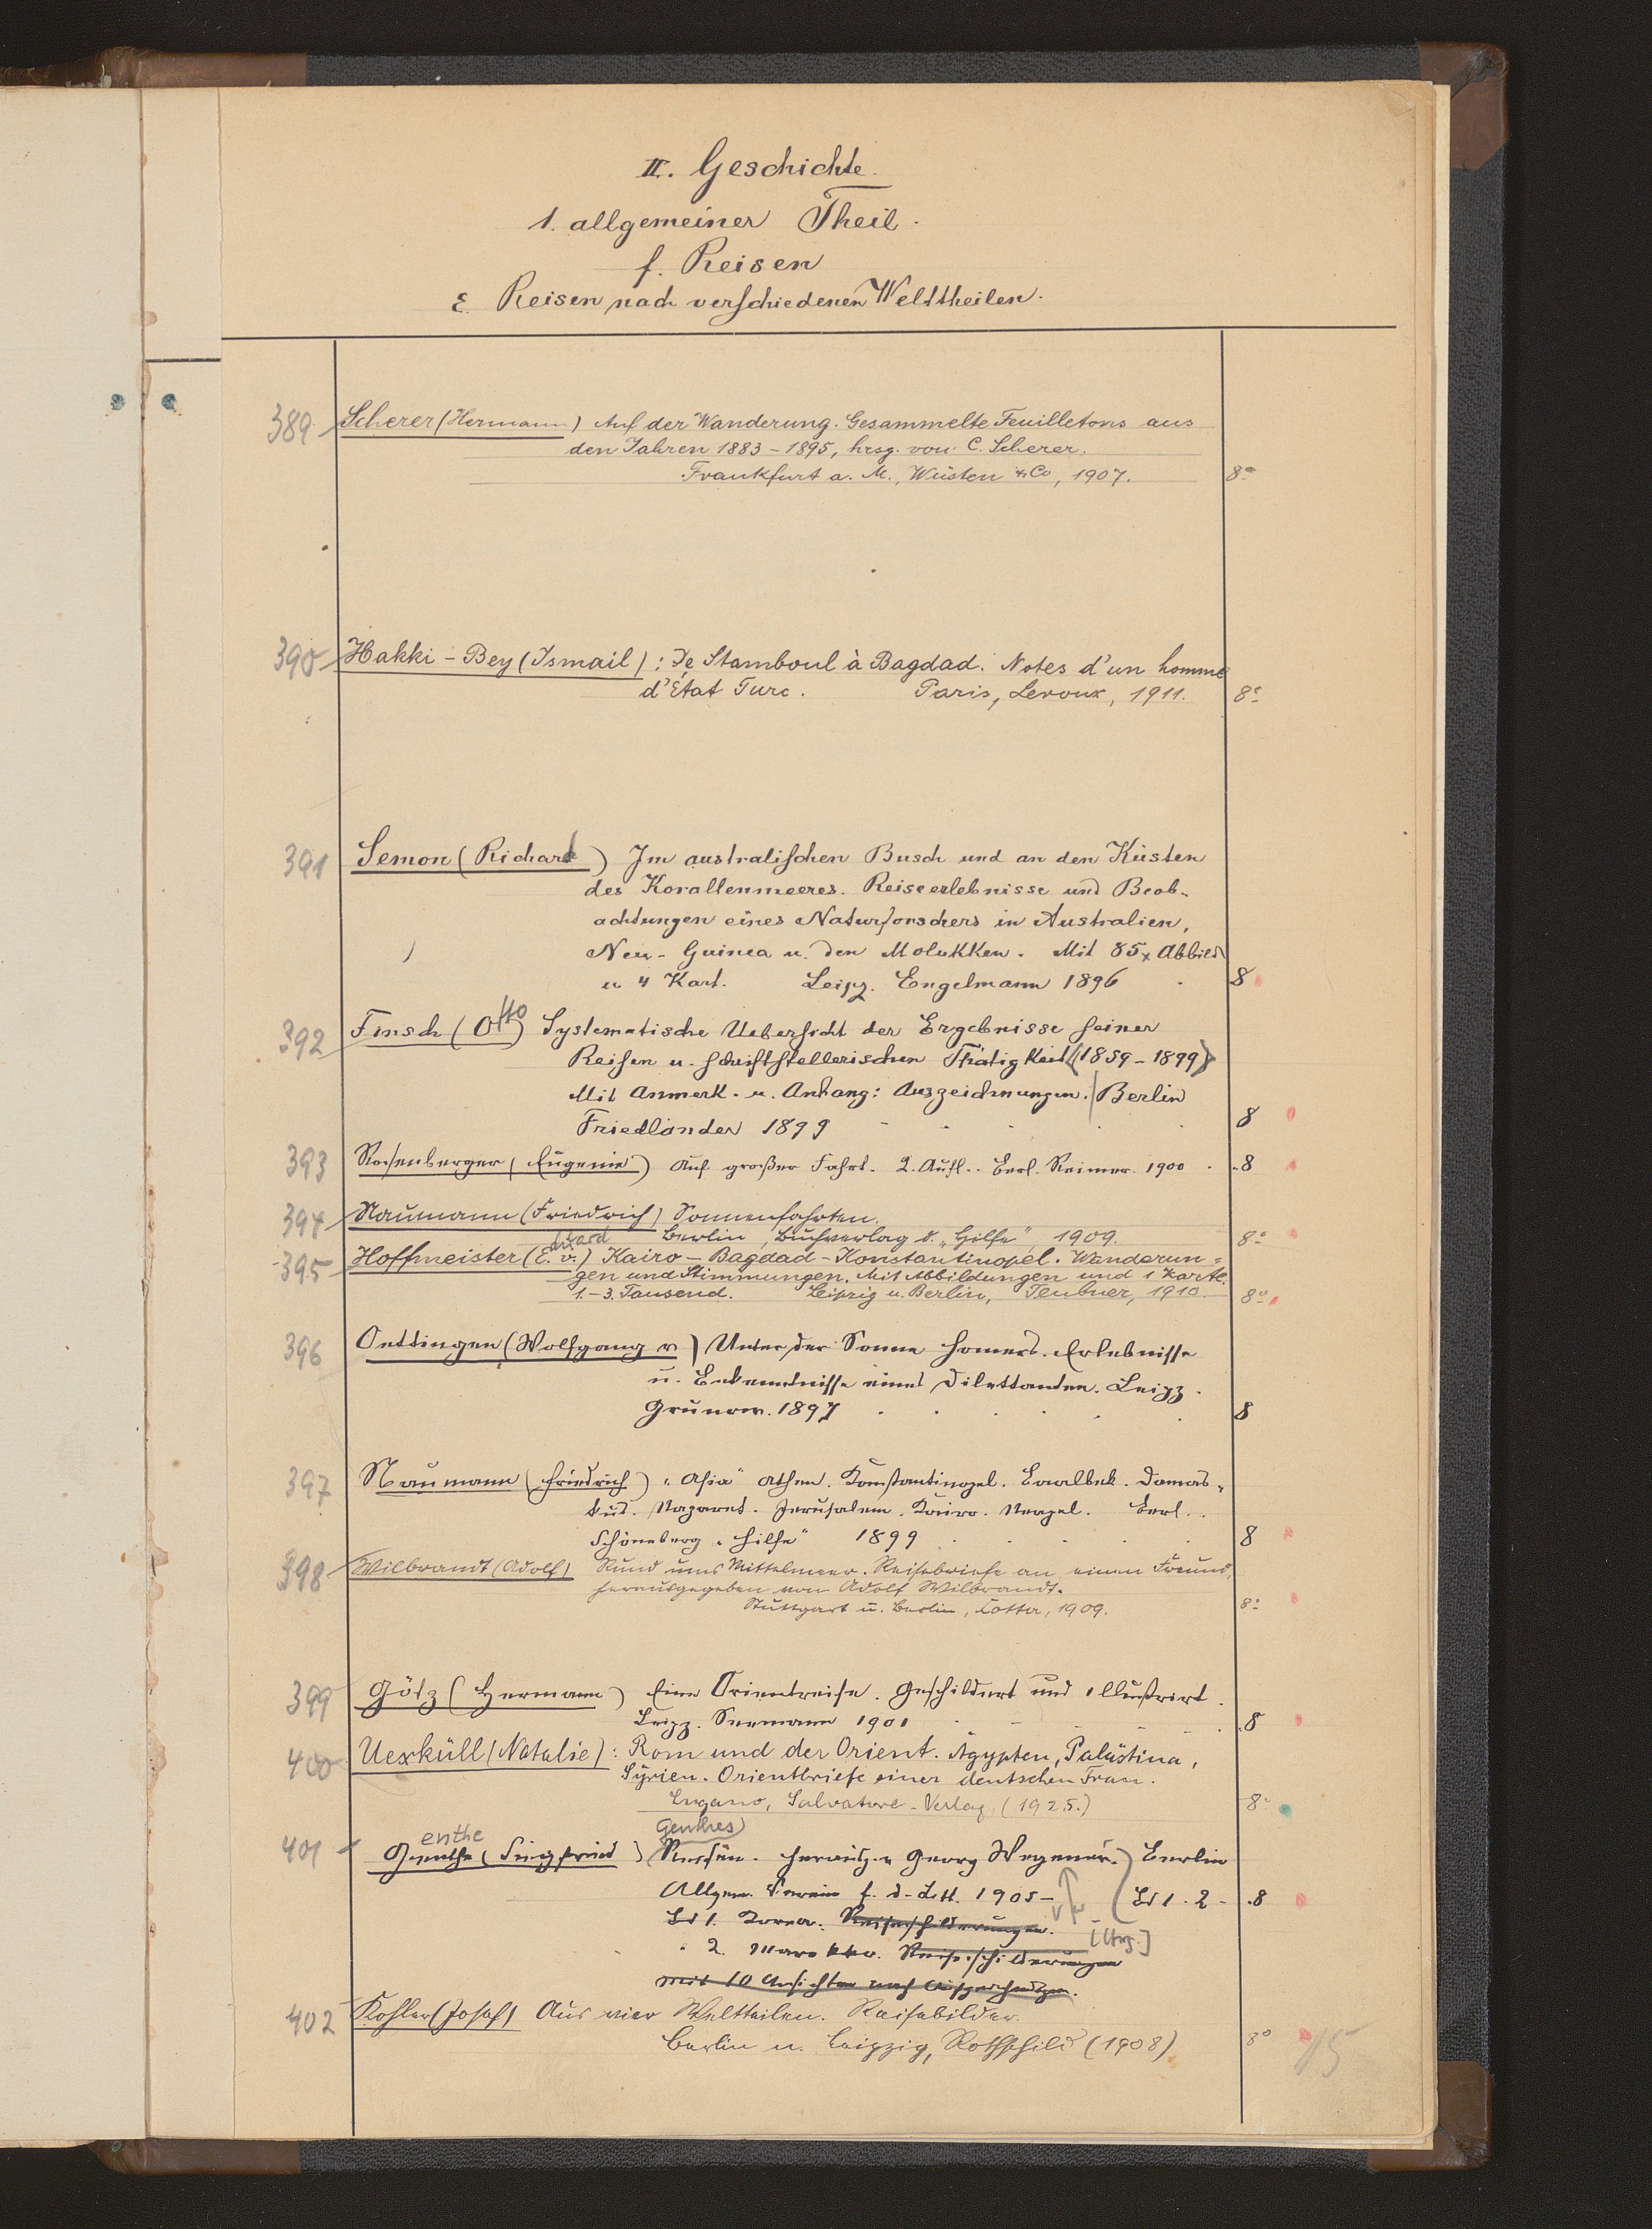 II. Geschichte.
1. allgemeiner Theil.
f. Reisen
ε. Reisen nach verschiedenen Welttheilen.
389 Scherer (Hermann) Auf der Wanderung. Gesammelte Feuilletons aus
den Jahren 1883-1895, hrsg. von C. Scherer.
Frankfurt a. M., Wüsten & Co, 1907. 8°
390 Hakki-Bey (Ismail): De Stamboul à Bagdad. Notes d'un homme
d'État Turc. Paris, Leroux, 1911. 8°
391 Semon (Richard) Im australischen Busch und an den Küsten
des Korallenmeeres. Reiseerlebnisse und Beob-
achtungen eines Naturforschers in Australien,
Neu-Guinea u. den Molukken. Mit 85 Abbild
u 4 Kart. Leipz. Engelmann 1896 8
392 Finsch (Otto) Systematische Uebersicht der Ergebnisse seiner
Reisen u. schriftstellerischen Thätigkeit (1859-1899)
Mit Anmerk. u. Anhang: Auszeichnungen. Berlin
Friedländer 1899 8
393 Rosenberger (Eugenie) Auf großer Fahrt. 2. Aufl. Berl. Reimer. 1900 8
394 Naumann (Friedrich) Sonnenfahrten.
Berlin, Buchverlag d. „Hilfe", 1909. 8°
395 Hoffmeister (E. v.) Kairo-Bagdad-Konstantinopel. Wanderun-
gen und Stimmungen. Mit Abbildungen und 1 Karte.
1.-3. Tausend. Leipzig u. Berlin, Teubner, 1910. 8°
396 Oettingen (Wolfgang v) Unter der Sonne Homers. Erlebnisse
u. Bekenntnisse eines Dilettanten. Leipz.
Grunow. 1897 8
397 Naumann (Friedrich) „Asia" Athen. Konstantinopel. Baalbek. Damas-
kus. Nazaret. Jerusalem. Kairo. Neapel. Berl.
Schöneberg „Hilfe" 1899 8
398 Wilbrandt (Adolf) Rund ums Mittelmeer. Reisebriefe an einen Freund,
herausgegeben von Adolf Wilbrandt.
Stuttgart u. Berlin, Cotta, 1909. 8°
399 Götz (Hermann) Eine Orientreise. Geschildert und illustrirt.
Leipz. Seemann 1901 8
400 Uexküll (Natalie): Rom und der Orient. Ägypten, Palästina,
Syrien. Orientbriefe einer deutschen Frau.
Lugano, Salvatore-Verlag, (1925.) 8°
enthe Genthes
401 Genthe (Siegfried) Reisen. Herausg. v Georg Wegener. Berlin
Allgem. Verein f. d. Litt. 1905- Bd 1. 2 - 8
Bd 1. Korea. Reiseschilderungen.
[Hrg.]
" 2. Marokko. Reiseschilderungen
mit 10 Ansichten nach
402 Kohler (Josef) Aus vier Weltteilen. Reisebilder.
Berlin u. Leipzig, Rothschild (1908) 8°
15